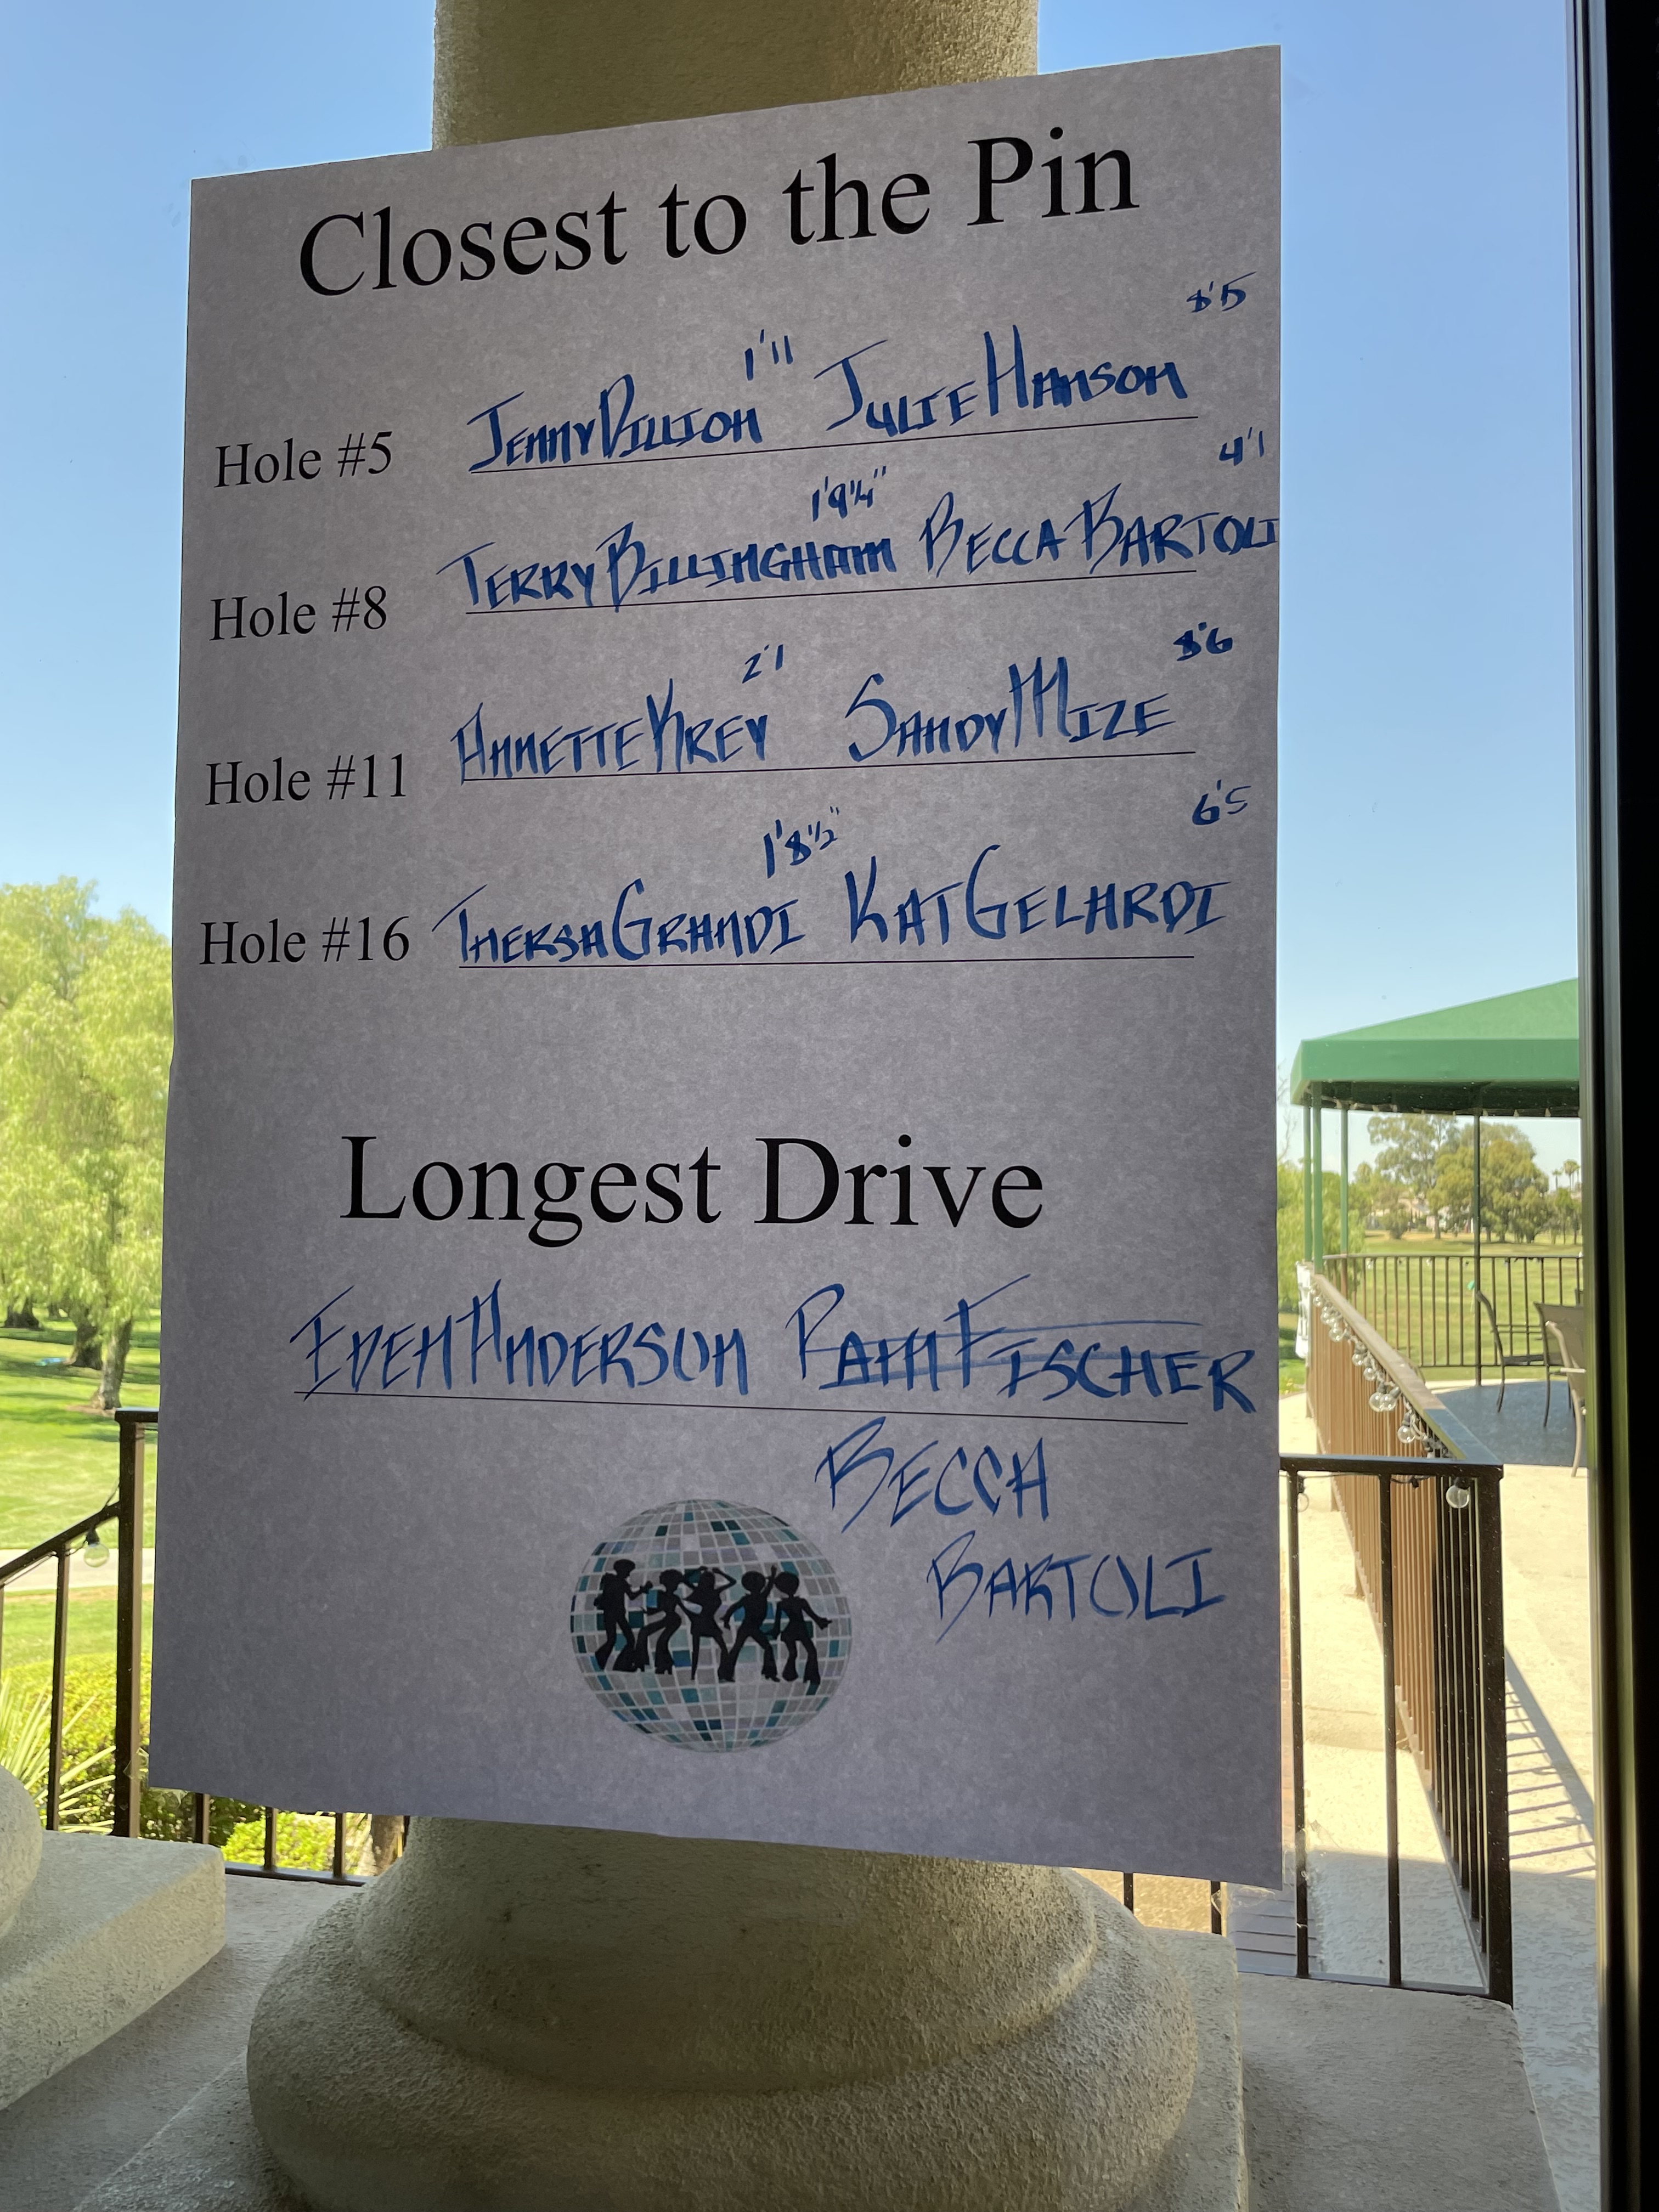 Closest to the Pin
1'11 5'5
Hole #5 JENNY DILLION JULIE HANSON
1'9 1/4" 4'1
Hole #8 TERRY BILLINGHAM BECCA BARTOLI
2'1 8'6
Hole #11 ANNETTE KREY SANDY MIZE
1'8 1/2" 6'5
Hole #16 THERSA GRANDI KAT GELARDI
Longest Drive
EDEN ANDERSON PAM FISCHER
BECCA
BARTOLI